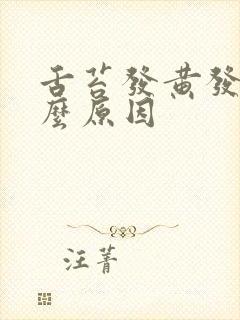 舌苔發黄發
麼原因
汪菁